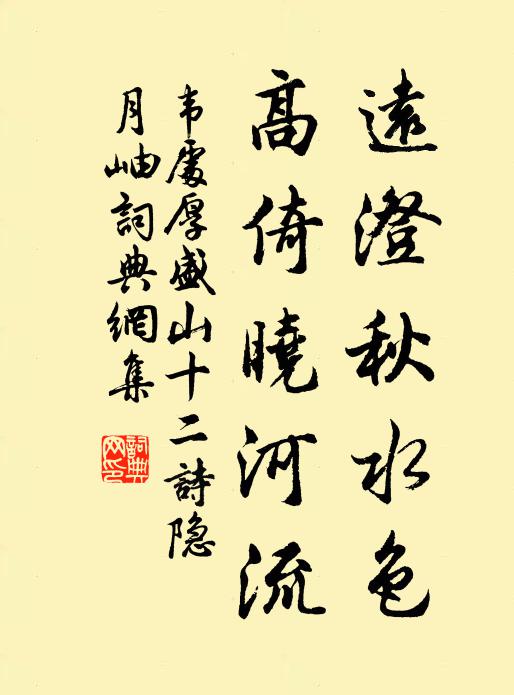 遠澄秋水色
高倚曉河流
韦處厚盛山十二詩隐
月岫詞典網集
詞典网印